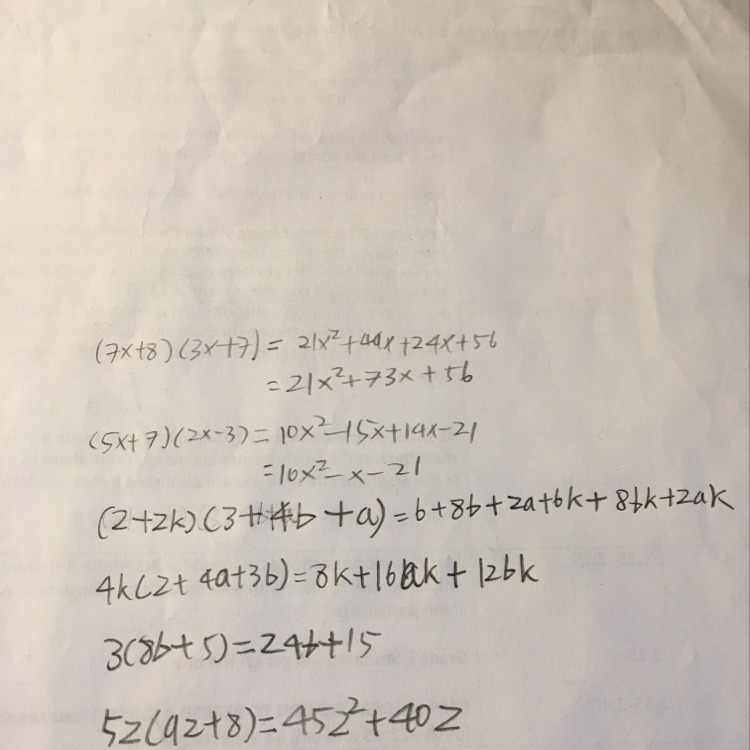 (7x+8)(3x+7)= 21x²+49x+24x+56
=21x²+73x+56
(5x+7)(2x-3)=10x²-15x+14x-21
=10x²-x-21
(2+2k)(3+4b+a)=6+8b+2a+6k+8bk+2ak
4k(2+4a+3b)=8k+16ak+12bk
3(8b+5)=24b+15
5z(9z+8)=45z²+40z